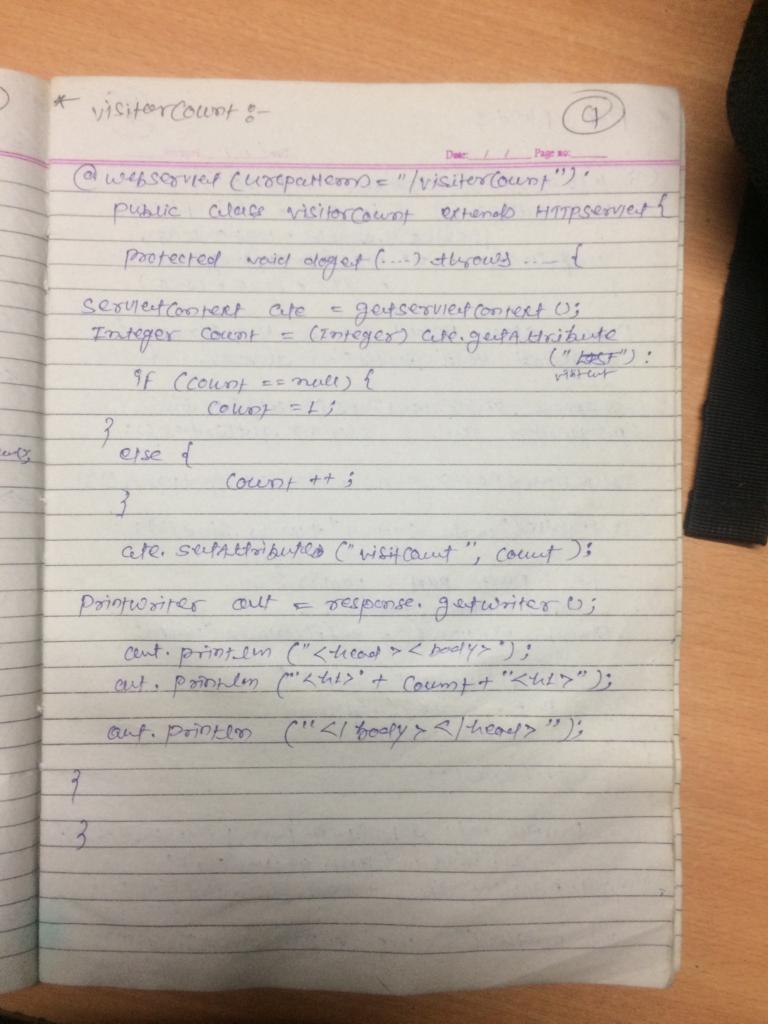 * visitorCount :-
9
Date: / / Page no:
@webservlet (urlpattern = "/visitorCount") .
public class visitorCount extends HTTPservlet {
protected void doget (....) throws .... {
servletContext ctx = getservletContext ();
Integer count = (Integer) ctx.getAttribute
("visitcount") :
if (count == null) {
count = 1 ;
}
else {
count ++ ;
}
ctx. setAttribute ("visitCount", count );
printwriter out = response. getwriter ();
out. println ("<head><body>");
out. println ("<h1>" + count + "<h1>");
out. println ("</body></head>");
}
}